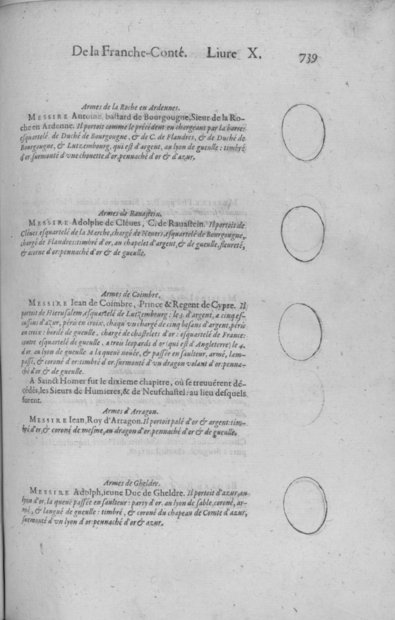 De la Franche-Conté. Liure X. 739
Armes de la Roche en Ardennes.
MESSIRE Antoine, bastard de Bourgougne, Sieur de la Ro-
che en Ardenne. Il portoit comme le précédent en chargeant par la barre:
esquartelé de Duché de Bourgougne, & de C. de Flandres, & de Duché de
Bourgougne, & Lutzembourg, qui est d'argent, au lyon de gueulle: timbré
d'or surmonté d'vne chouette d'or, pennaché d'or & d'azur.
Armes de Rauastein.
MESSIRE Adolphe de Cléues, C. de Rauastein. Il portoit de
Cléues esquartelé de la Marche, chargé de Neuers, esquartelé de Bourgougne,
chargé de Flandres: timbré d'or, au chapelet d'argent, & de gueulle, fleureté,
& acorné d'or: pennaché d'or & de gueulle.
Armes de Coimbre.
MESSIRE Iean de Coimbre, Prince & Regent de Cypre. Il
portoit de Hierusalem, esquartelé de Lutzembourg: le 3. d'argent, a cinq es-
cusons d'azur, périz en croix, chaqu'vn chargé de cinq besans d'argent, périz
en croix: bordé de gueulle, chargé de chastelets d'or: esquartelé de France:
contre esquartelé de gueulle, a trois leopards d'or qui est d'Angleterre; le 4.
d'or au lyon de gueulle a la queuë nouée, & passée en saulteur, armé, lem-
passé, & coroné d'or: timbré d'or, surmonté d'vn dragon volant d'or: penna-
ché d'or & de gueulle.
A Sainct Homer fut le dixieme chapitre, où se treuuérent dé-
cédés, les Sieurs de Humieres, & de Neufchastel: au lieu desquels
furent.
Armes d'Arragon.
MESSIRE Iean, Roy d'Arragon. Il portoit palé d'or & argent: tim-
bré d'or, & coroné de mesme, au dragon d'or, pennaché d'or & de gueulle.
Armes de Gheldre.
MESSIRE Adolph, ieune Duc de Gheldre. Il portoit d'azur, au
lyon d'or, la queuë passée en saulteur: party d'or, au lyon de sable, coroné, ar-
mé, & langué de gueulle: timbré, & coroné du chapeau de Comte d'azur,
surmonté d'vn lyon d'or: pennaché d'or & azur.